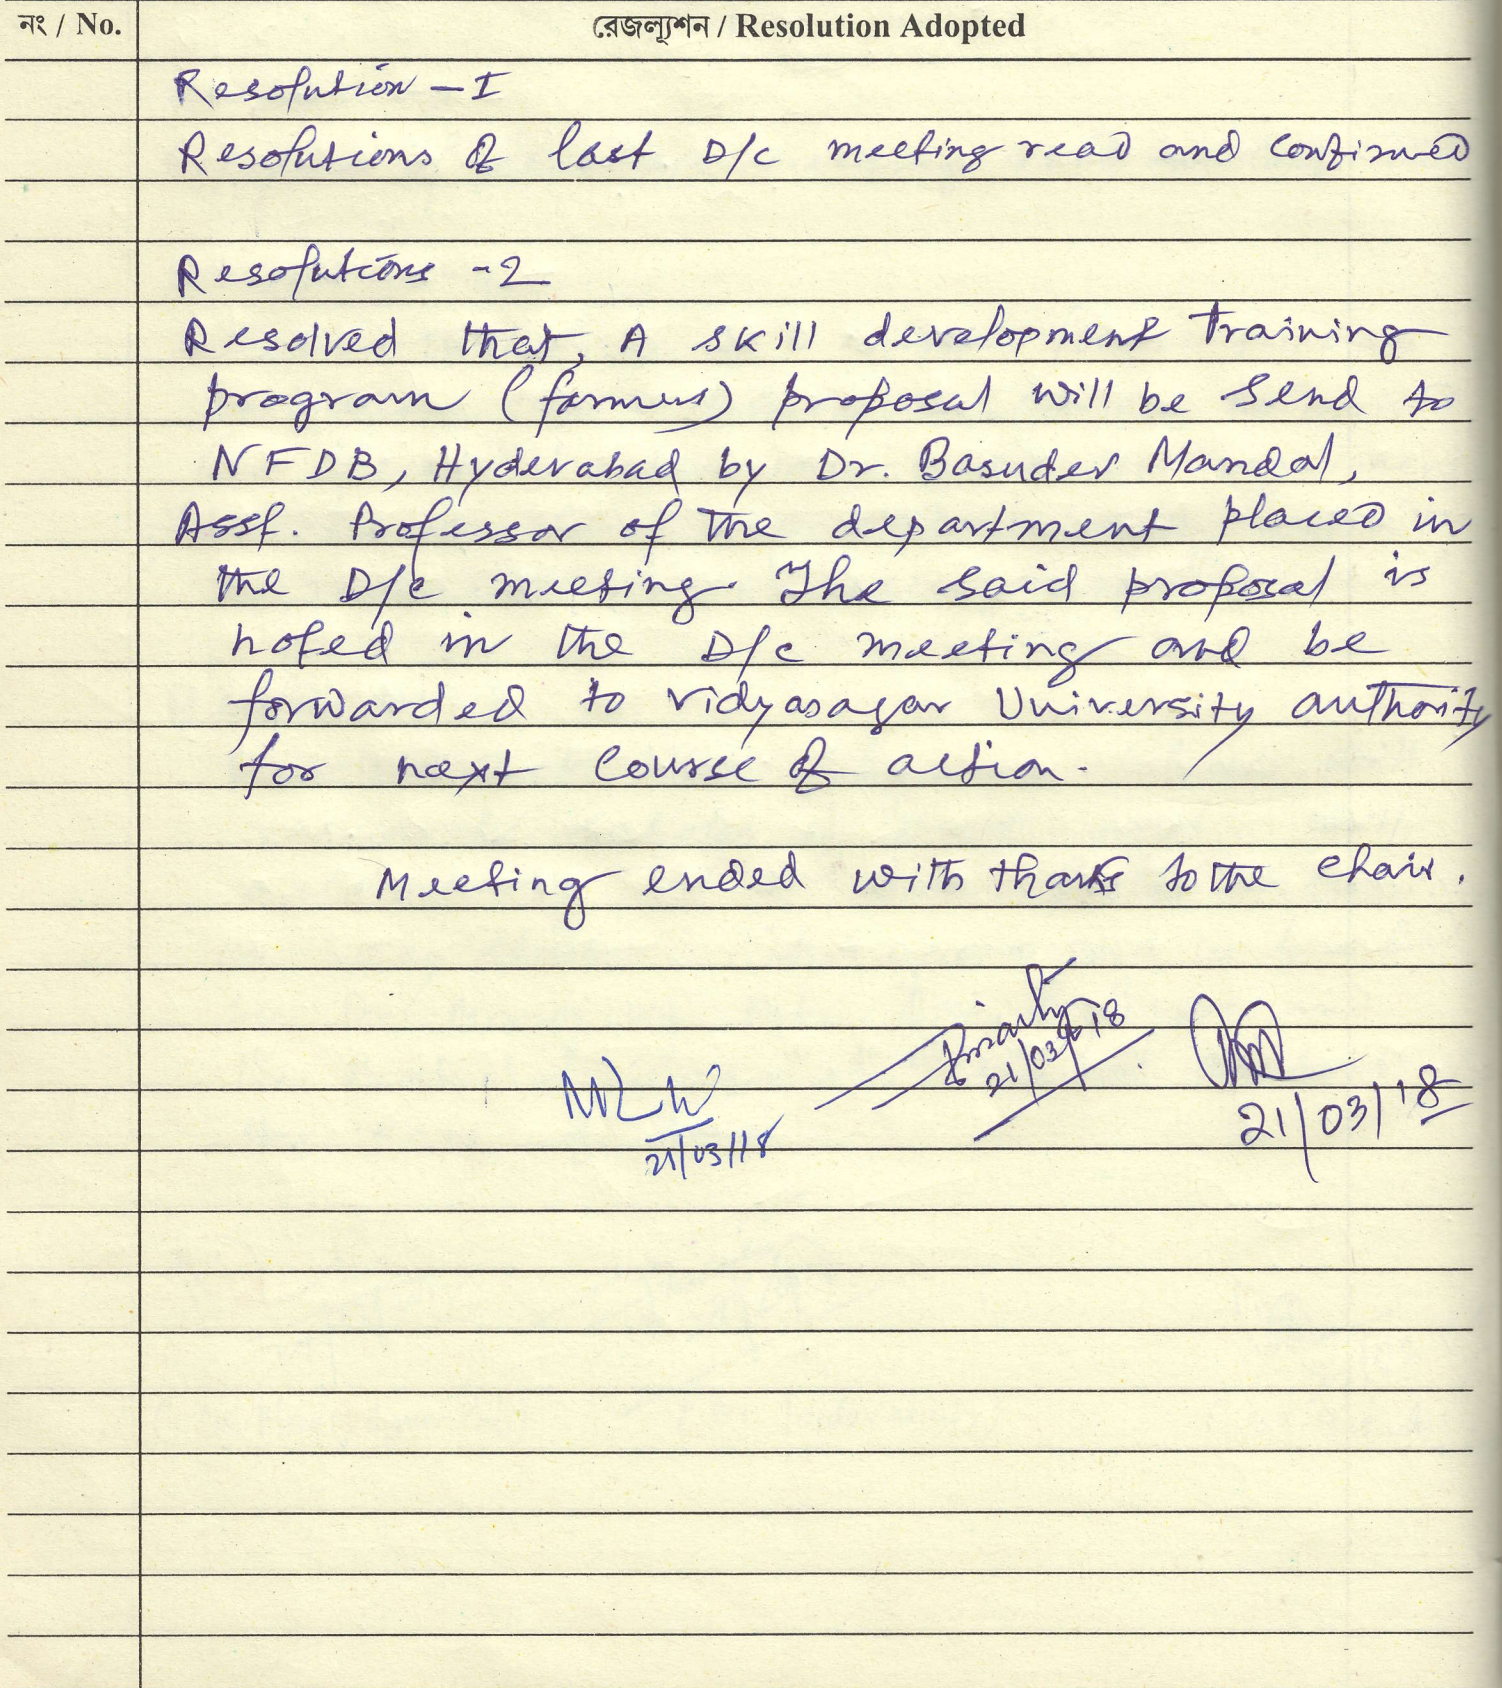 নং / No.
রেজল্যুশন / Resolution Adopted
Resolution – I
Resolutions of last D/c meeting read and confirmed
Resolutions - 2
Resolved that, A skill development Training
program (farmers) proposal will be send to
NFDB, Hyderabad by Dr. Basudev Mandal,
Asst. Professor of the department placed in
the D/c meeting. The said proposal is
noted in the D/c meeting and be
forwarded to Vidyasagar University authority
for next course of action.
Meeting ended with thanks to the chair.
21/03/18
21/03/18
21/03/18